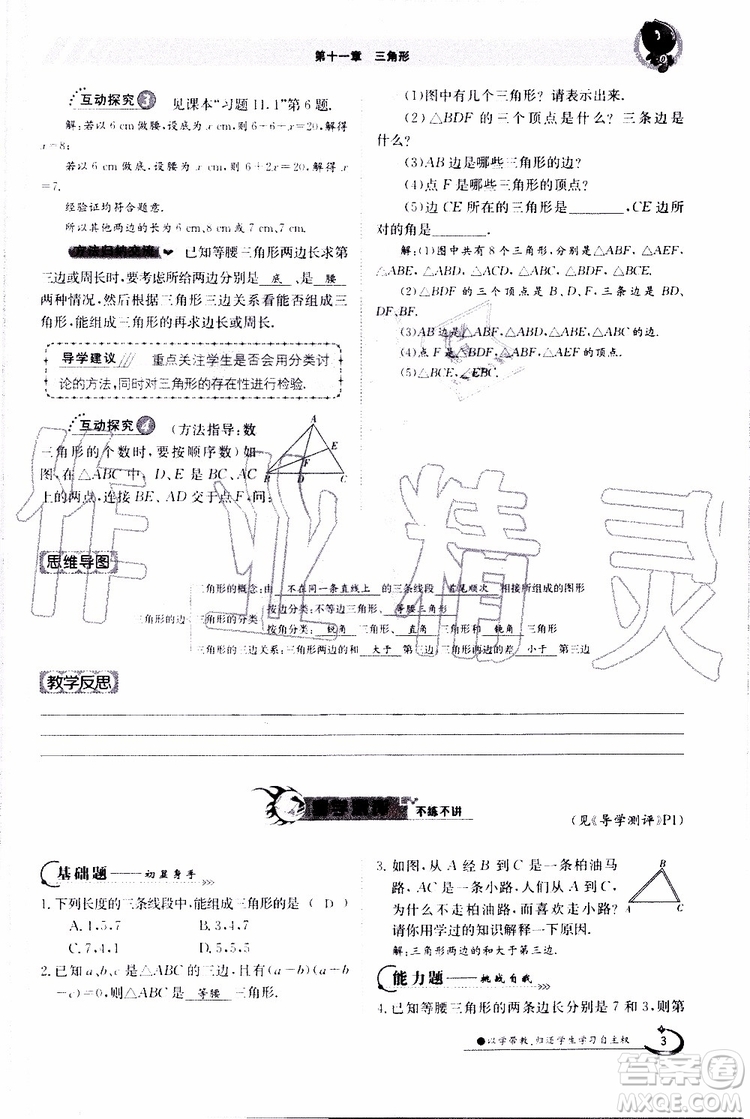 第十一章 三角形
互动探究3 见课本“习题11.1”第6题.
解:若以6 cm做腰,设底为x cm,则6+6+x=20,解得
x=8;
若以6 cm做底,设腰为x cm,则6+2x=20,解得x=
7.
经验证均符合题意.
所以其他两边为6 cm,8 cm或7 cm,7 cm.
方法归纳交流 已知等腰三角形两边长求第
三边或周长时,要考虑所给两边分别是 底 、是 腰
两种情况,然后根据三角形三边关系看能否组成三
角形,能组成三角形的再求边长或周长.
导学建议 重点关注学生是否会用分类讨
论的方法,同时对三角形的存在性进行检验.
互动探究4 (方法指导:数
三角形的个数时,要按顺序数)如
图,在△ABC中,D、E是BC、AC
上的两点,连接BE、AD交于点F,问:
A
E
F
B D C
(1)图中有几个三角形?请表示出来.
(2)△BDF的三个顶点是什么?三条边是
什么?
(3)AB边是哪些三角形的边?
(4)点F是哪些三角形的顶点?
(5)边CE所在的三角形是 ,CE边所
对的角是 .
解:(1)图中共有8个三角形,分别是△ABF、△ABD、
△ABE、△ABC、△AEF、△ADC、△BDF、△BCE.
(2)△BDF的三个顶点是B、D、F,三条边是BD、
DF、BF.
(3)AB边是△ABF、△ABD、△ABE、△ABC的边.
(4)点F是△ABF、△BDF、△AEF的顶点.
(5)△BCE,∠CBE.
思维导图
三角形的边
三角形的概念:由 不在同一条直线上 的三条线段 首尾顺次 相接所组成的图形
三角形的分类
按边分类:不等边三角形、 等腰三角形
按角分类: 锐角 三角形、 直角 三角形和 钝角 三角形
三角形的三边关系:三角形两边的和 大于 第三边,三角形两边的差 小于 第三边
教学反思
不练不讲
(见《导学测评》P1)
基础题——初显身手
1.下列长度的三条线段中,能组成三角形的有 ( D )
A.1,5,7 B.3,4,7
C.7,4,1 D.5,5,5
2.已知a、b、c是△ABC的三边,且满足(a-b)(a-b
-c)=0,则△ABC是 等腰 三角形.
3.如图,从A经B到C是一条柏油马
路,AC是一条小路,人们从A到C
为什么不走柏油马路,而喜欢走小路?
请你用学过的知识解释一下原因.
解:三角形两边的和大于第三边.
B
A C
能力题——挑战自我
4.已知等腰三角形的两条边长分别是7和3,则第
●以学带教,归还学生学习自主权
3
作业精灵
答案圈
MXQE.COM